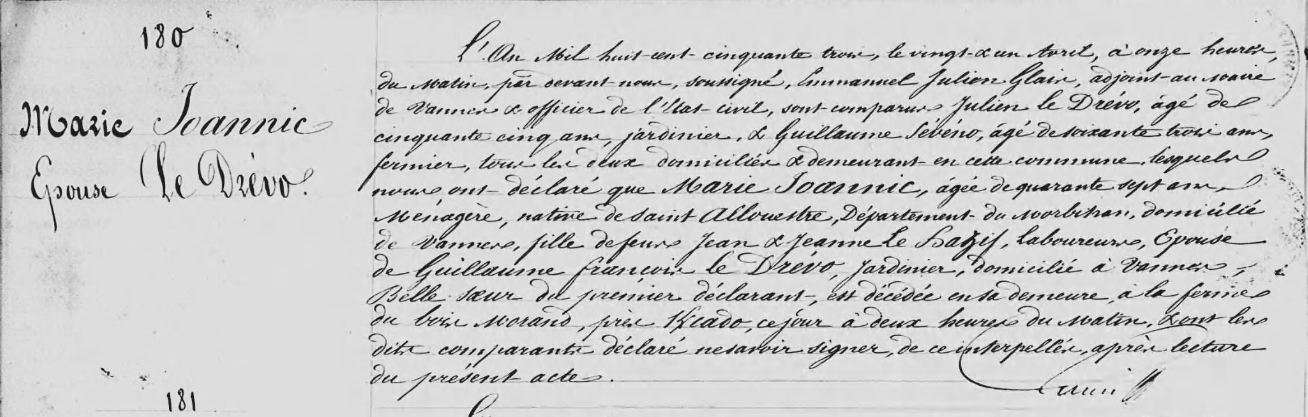 180
Marie Joannic
Epouse Le Drévo.
L'An Mil huit cent cinquante trois, le vingt & un Avril, à onze heures
du Matin, par devant nous, soussigné, Emmanuel Julien Glais, adjoint au Maire
de Vannes & officier de l'Etat civil, sont comparus Julien le Drévo, âgé de
cinquante cinq ans, jardinier, & Guillaume Sévéno, âgé de soixante trois ans,
fermier, tous les deux domiciliés & demeurant en cette commune, lesquels
nous ont déclaré que Marie Joannic, âgée de quarante sept ans,
Ménagère, native de Saint Allouestre, Département du Morbihan, domicilié
de Vannes, fille de feus Jean & Jeanne Le , laboureurs, Epouse
de Guillaume François le Drévo, Jardinier, domicilié à Vannes,
Belle sœur du premier déclarant, est décédée en sa demeure, à la ferme
du bois Morand, près , ce jour à deux heures du Matin, & ont les
dits comparants déclaré ne savoir signer, de ce interpellés, après lecture
du présent acte.
181